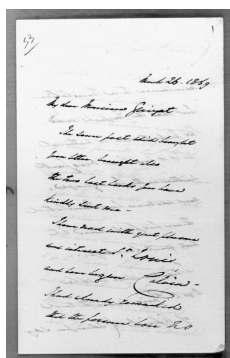 53
March 26. 1869
My dear Monsieur Guizot
The same post which brought
your letter brought also
the two last books you have
kindly sent me -
I have read with great pleasure
and interest St. Louis
and have begun Calvin -
I had already remarked